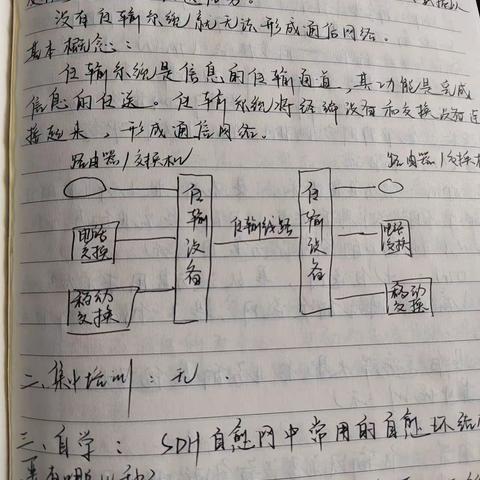 没有传输系统就无法形成通信网络。
基本概念:
传输系统是信息的传输通道,其功能是完成
信息的传送。传输系统将终端设备和交换设备连
接起来,形成通信网络。
路由器/交换机
路由器/交换机
传输设备
传输线路
传输设备
电话交换
电话交换
移动交换
移动交换
二、集中培训:无.
三、自学: SDH自愈网中常用的自愈环结